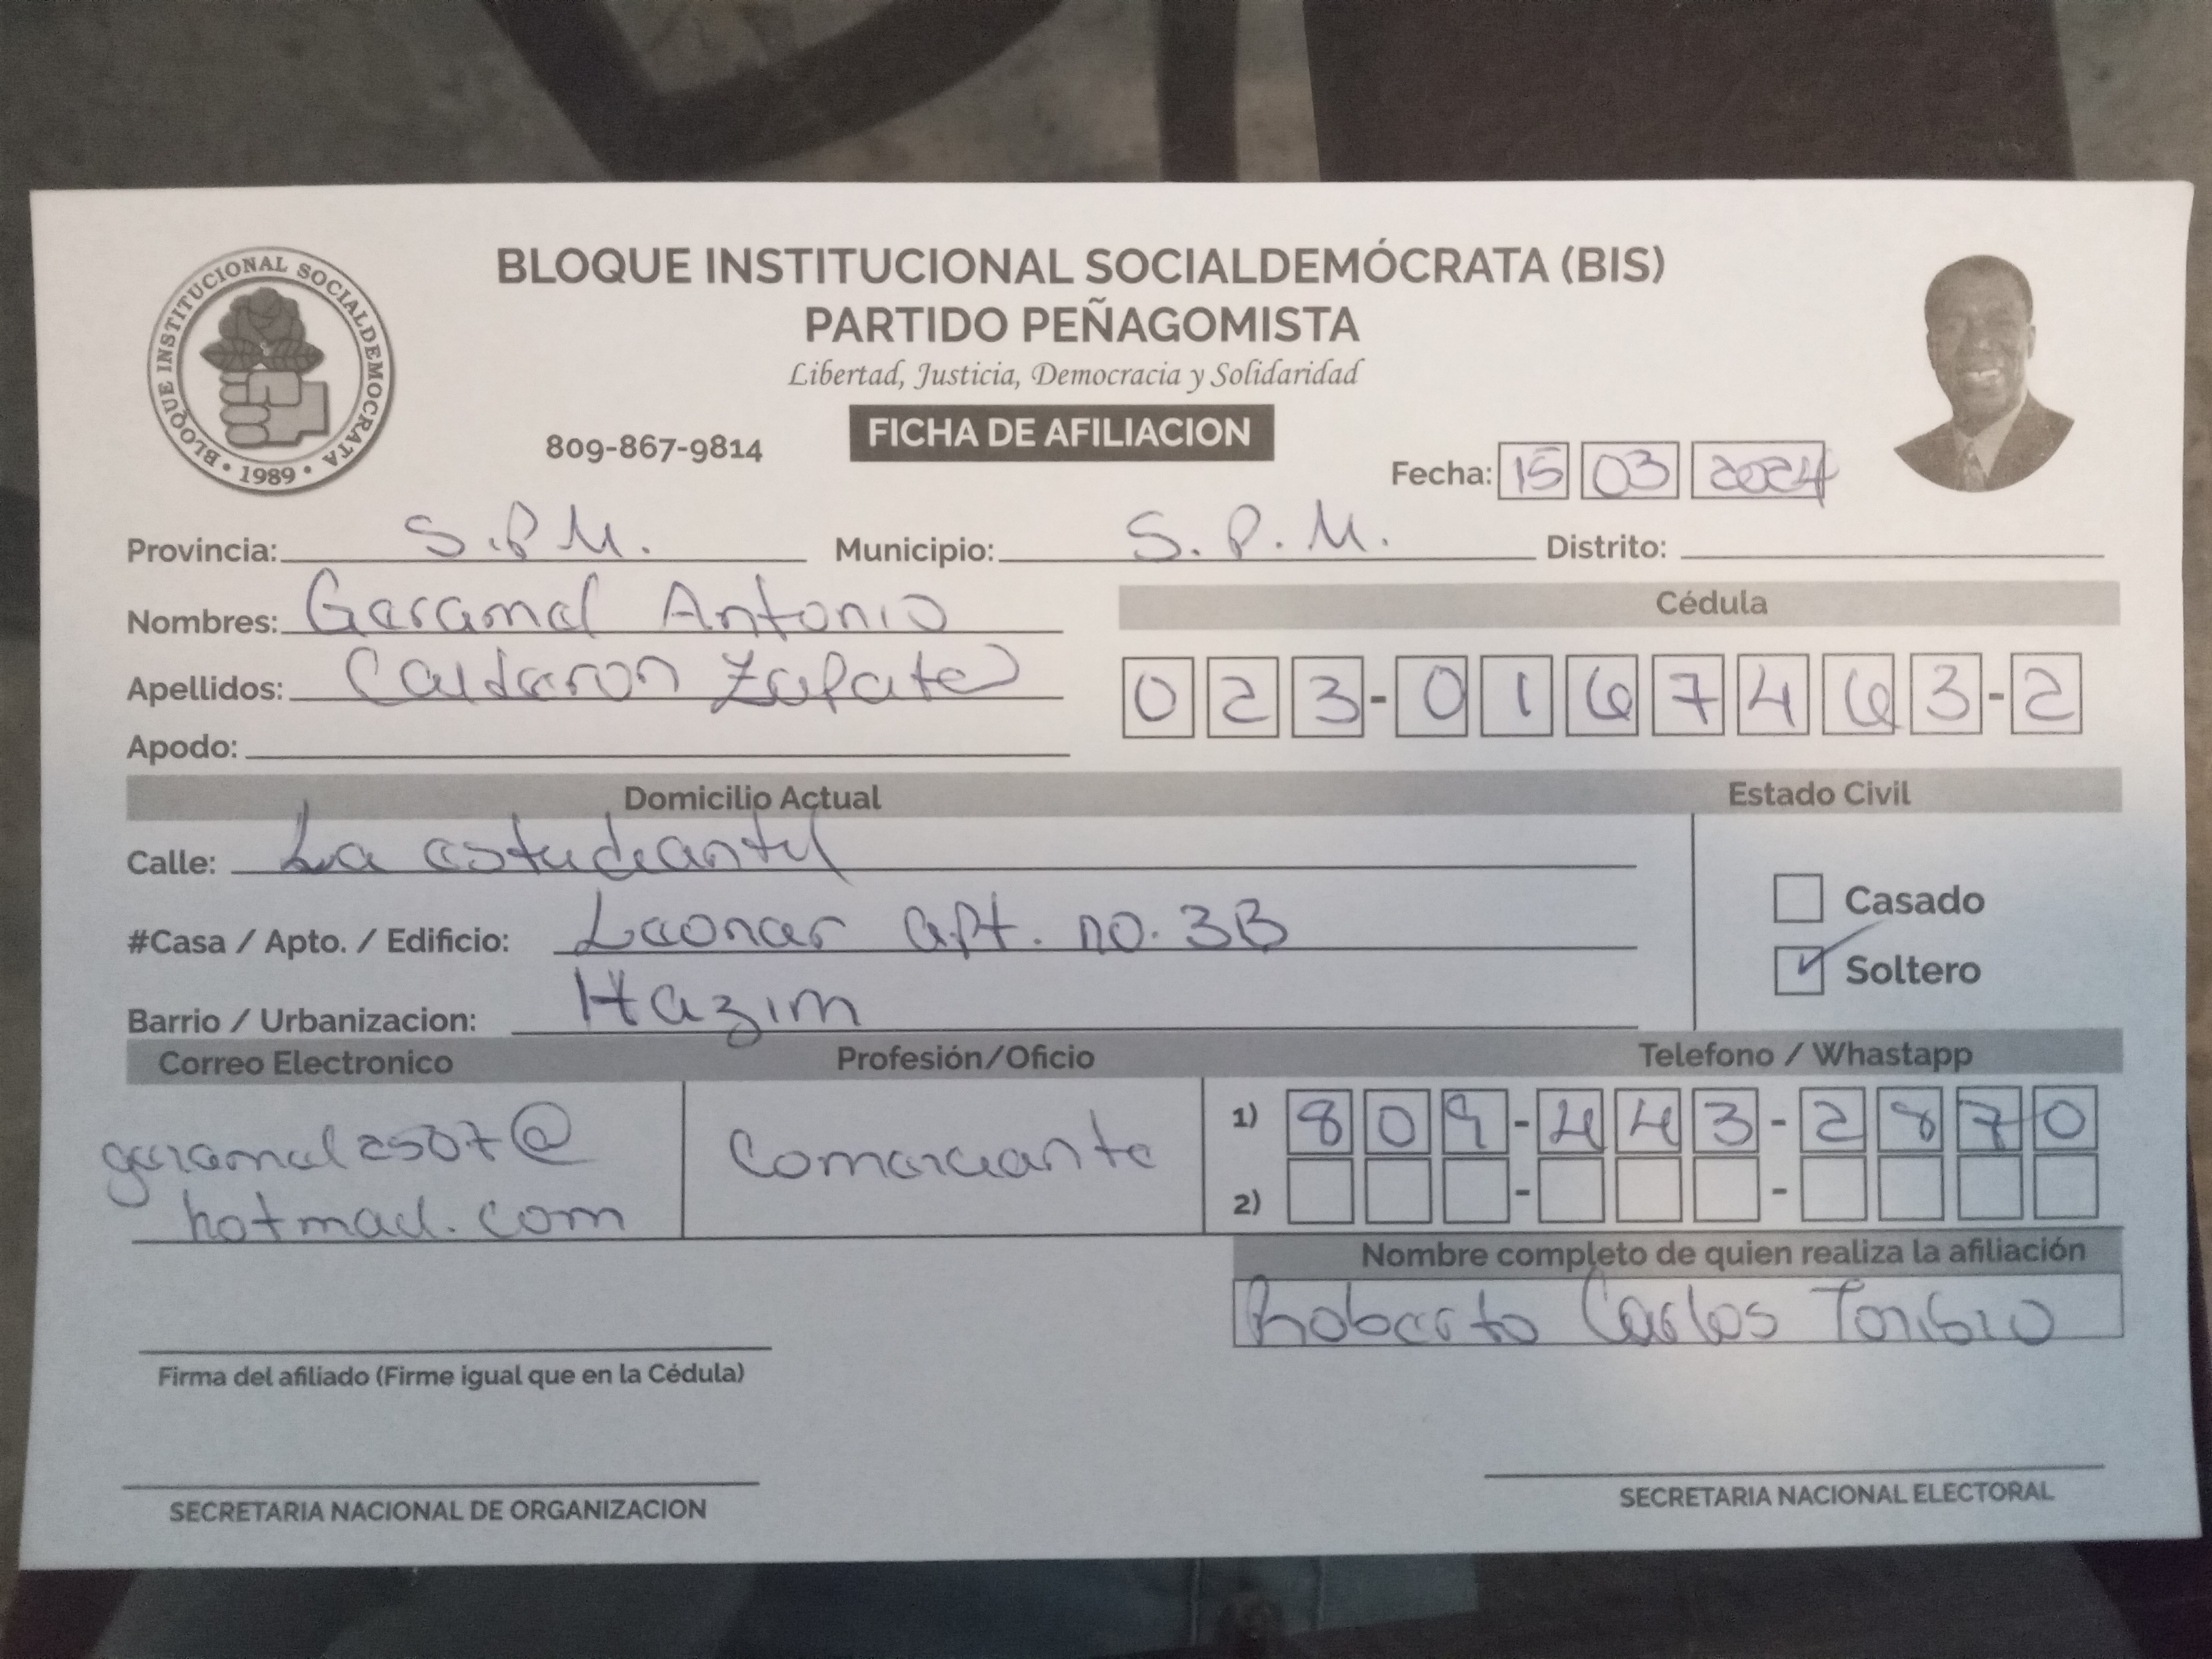 BLOQUE INSTITUCIONAL SOCIALDEMOCRATA • 1989 •
BLOQUE INSTITUCIONAL SOCIALDEMÓCRATA (BIS)
PARTIDO PEÑAGOMISTA
Libertad, Justicia, Democracia y Solidaridad
809-867-9814 FICHA DE AFILIACION
Fecha: 15 03 2024
Provincia: S.P.M. Municipio: S.P.M. Distrito:
Nombres: Geramel Antonio
Cédula
Apellidos: Calderon Zapata
023-0167463-2
Apodo:
Domicilio Actual Estado Civil
Calle: La estudiantil
Casado
#Casa / Apto. / Edificio: Leonar apt. no. 3B
Soltero
Barrio / Urbanizacion: Hazim
Correo Electronico Profesión/Oficio Telefono / Whastapp
geramel2507@
hotmail.com
Comerciante
1) 809-443-2870
2)
Nombre completo de quien realiza la afiliación
Roberto Carlos Toribio
Firma del afiliado (Firme igual que en la Cédula)
SECRETARIA NACIONAL DE ORGANIZACION
SECRETARIA NACIONAL ELECTORAL